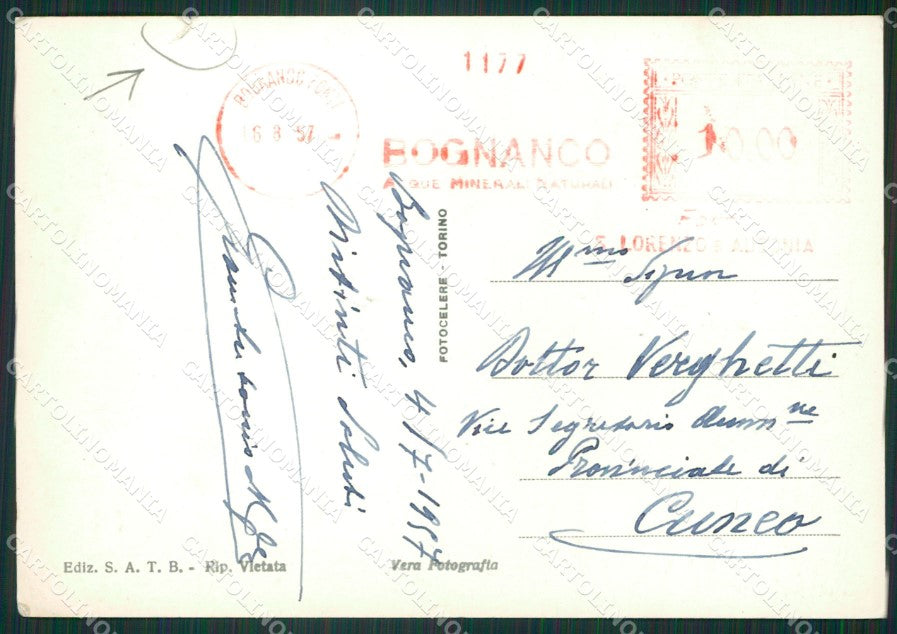 1177
BOGNANCO FONTI
6 8 57
BOGNANCO
ACQUE MINERALI NATURALI
10.00
S. LORENZO E AUSONIA
Bognanco, 4/7-1957
Distinti Saluti
FOTOCELERE TORINO
Ill mo Signor
Dottor Verghetti
Vice Segretario Amm ne
Provinciale di
Cuneo
Ediz. S. A. T. B. - Rip. Vietata
Vera Fotografia
CARTOLINOMANIA